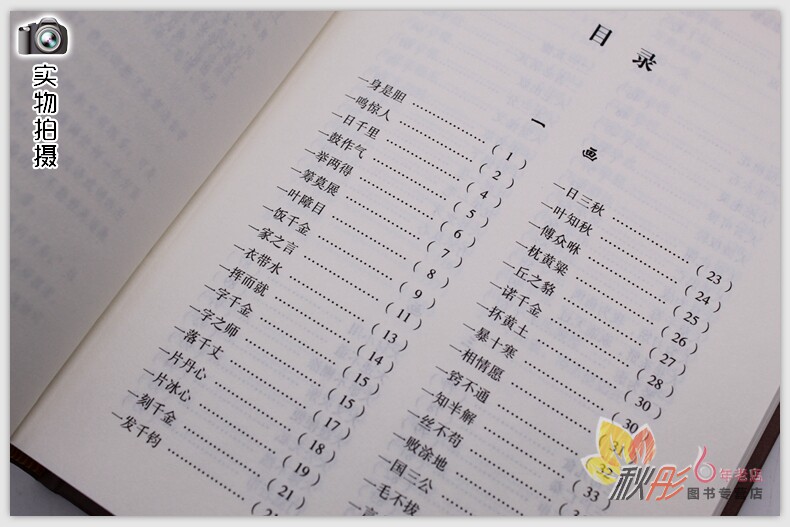 实物拍摄
目录
一画
一身是胆……………(1)
一鸣惊人……………(2)
一日千里……………(4)
一鼓作气……………(5)
一举两得……………(6)
一筹莫展……………(7)
一叶障目……………(8)
一饭千金……………(9)
一家之言……………(11)
一衣带水……………(13)
一挥而就……………(14)
一字千金……………(15)
一字之师……………(15)
一落千丈……………(17)
一片丹心……………(18)
一片冰心……………(19)
一刻千金……………(21)
一发千钧……………
一日三秋……………(23)
一叶知秋……………(24)
一傅众咻……………(25)
一枕黄粱……………(26)
一丘之貉……………(27)
一诺千金……………(28)
一抔黄土……………(30)
一暴十寒……………(30)
一相情愿……………(31)
一窍不通……………(32)
一知半解……………(33)
一丝不苟……………
一败涂地……………
一国三公……………
一毛不拔
秋彤
6年老店
图书专营店